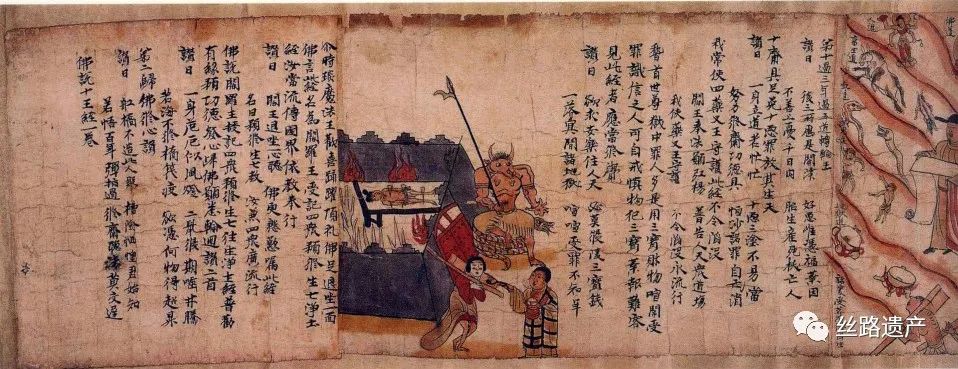 佛道
人道
第十過三年過五道轉輪王
讚曰 後三所歷是關津 好惡唯憑福業因
不善上憂千日內 胎生產死拔亡人
十齋具足免十惡罪放其生天
讚曰 一身六道苦忙忙 十惡三塗不易當
努力修齋功德具 恒沙諸罪自消
我常使四藥叉王守護此經不令陷沒
讚曰 閻王奉法願弘揚 普告人天眾道場
我使藥叉 護 不令陷沒永流行
稽首世尊獄中罪人多是用三寶財物喧鬧受
罪識信之人可自戒慎勿犯三寶業報難容
見此經者應當修學
讚曰 欲求安樂住人天 必莫侵 三寶錢
一落冥間諸地獄 喧喧受罪不知年
尒時琰魔法王歡喜踊躍頂礼佛足退坐一面
佛言此經名為閻羅王受記四眾預修生七淨土
經汝當流傳國界依教奉行
讚曰 閻王退坐一心聽 佛更慇懃囑此經
名曰預修生七教 汝兼四眾廣流行
佛說閻羅王授記四眾預修生七往生淨土經普勸
有緣預功德發心歸佛願息輪迴讚二首
讚曰 一身危厄似風燈 二鼠侵期 井藤
苦海不修橋筏渡 欲憑何物得超昇
第二歸佛修心讚
讚曰 船橋不造此人癡 遭險恓惶君始知
若悟百年彈指過 修齋聽法莫交遲
佛說十王經一卷
丝路遗产